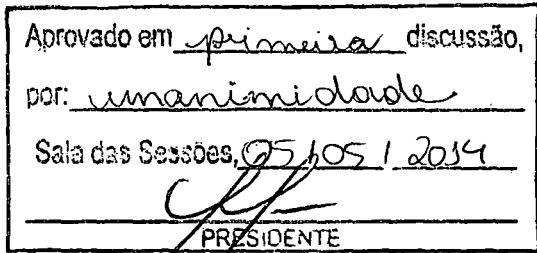 Aprovado em primeira discussão,
por: unanimidade
Sala das Sessões, 05/05/2014
PRESIDENTE